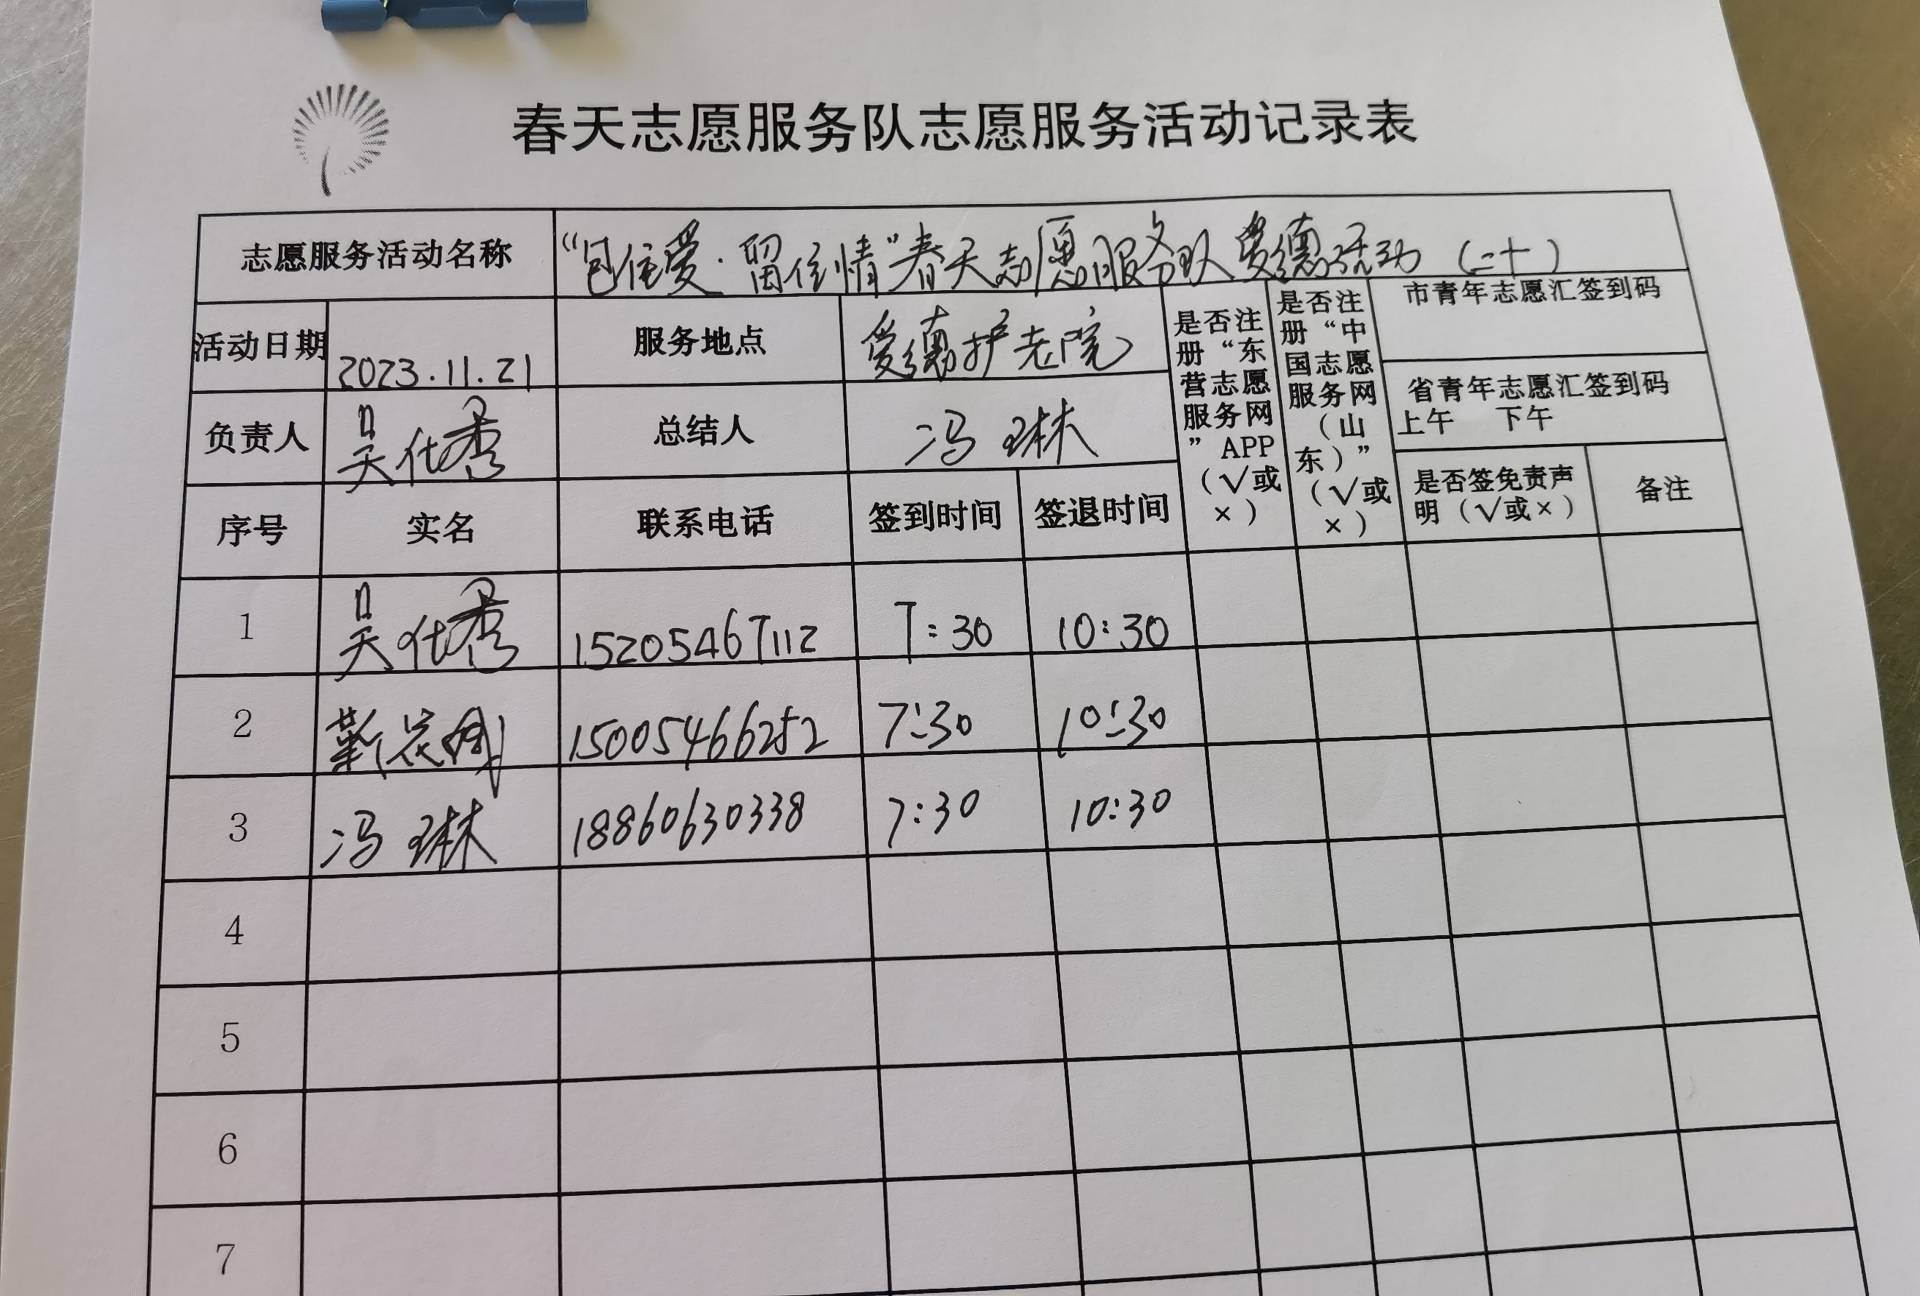 春天志愿服务队志愿服务活动记录表
志愿服务活动名称 “包住爱·留住情”春天志愿服务队爱德活动（二十）
活动日期 2023.11.21 服务地点 爱德护老院
是否注册“东营志愿服务网”APP（√或×）
是否注册“中国志愿服务网（山东）”（√或×）
市青年志愿汇签到码
省青年志愿汇签到码
上午 下午
负责人 吴仕秀 总结人 冯琳
序号 实名 联系电话 签到时间 签退时间 是否签免责声明（√或×） 备注
1 吴仕秀 15205467112 7:30 10:30
2 15005466252 7:30 10:30
3 冯琳 18860630338 7:30 10:30
4
5
6
7